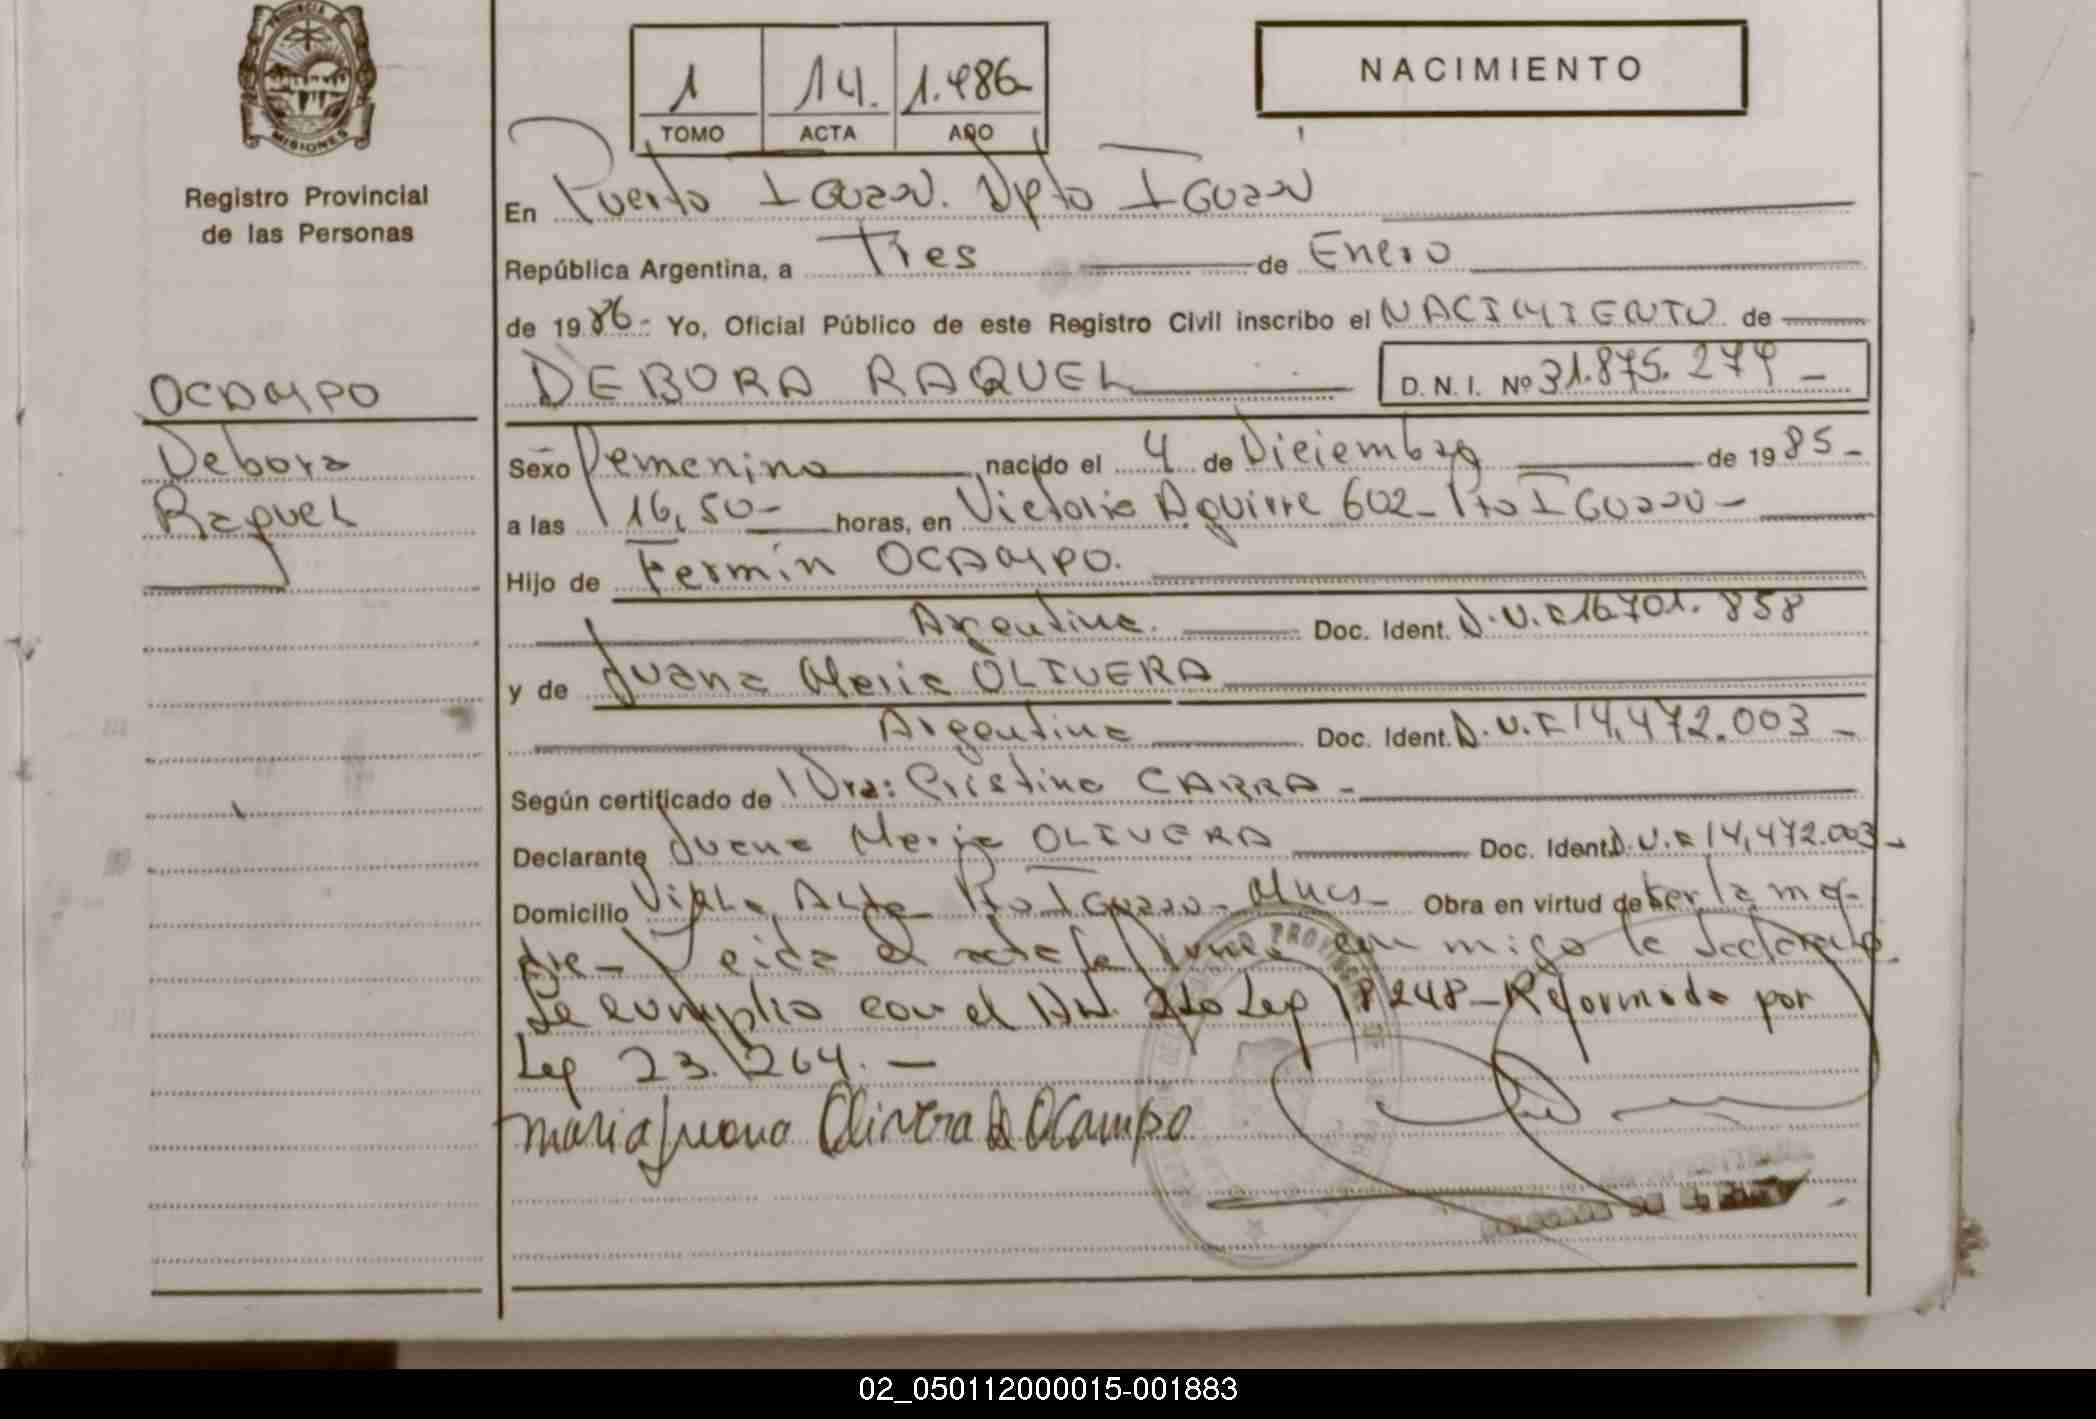 PROVINCIA DE
MISIONES
Registro Provincial
de las Personas
OCAMPO
Debora
Raquel
1 14. 1.986
TOMO ACTA AÑO
NACIMIENTO
En Puerto Iguazú. Dpto Iguazú
República Argentina, a Tres de Enero
de 1986- Yo, Oficial Público de este Registro Civil inscribo el NACIMIENTO de
DEBORA RAQUEL D. N. I. Nº 31.875.279 -
Sexo Femenino nacido el 4 de Diciembre de 1985-
a las 16,50- horas, en Victoria Aguirre 602- Pto Iguazu-
Hijo de Fermín OCAMPO.
Argentina. Doc. Ident. D.N.I 16.701.858
y de Juana Maria OLIVERA
Argentina Doc. Ident. D.N.I 14,472.003 -
Según certificado de Dra: Cristina CARRA -
Declarante Juana Maria OLIVERA Doc. Ident. D.N.I 14,472.003 -
Domicilio Villa Alta Pto Iguazu- Mnes- Obra en virtud de ser la ma-
dre- Leida el acta la firma con migo la declarante.
Se cumplio con el Art. 2do Ley 18248- Reformada por
Ley 23.264. -
Maria Juana Olivera de Ocampo
02_050112000015-001883